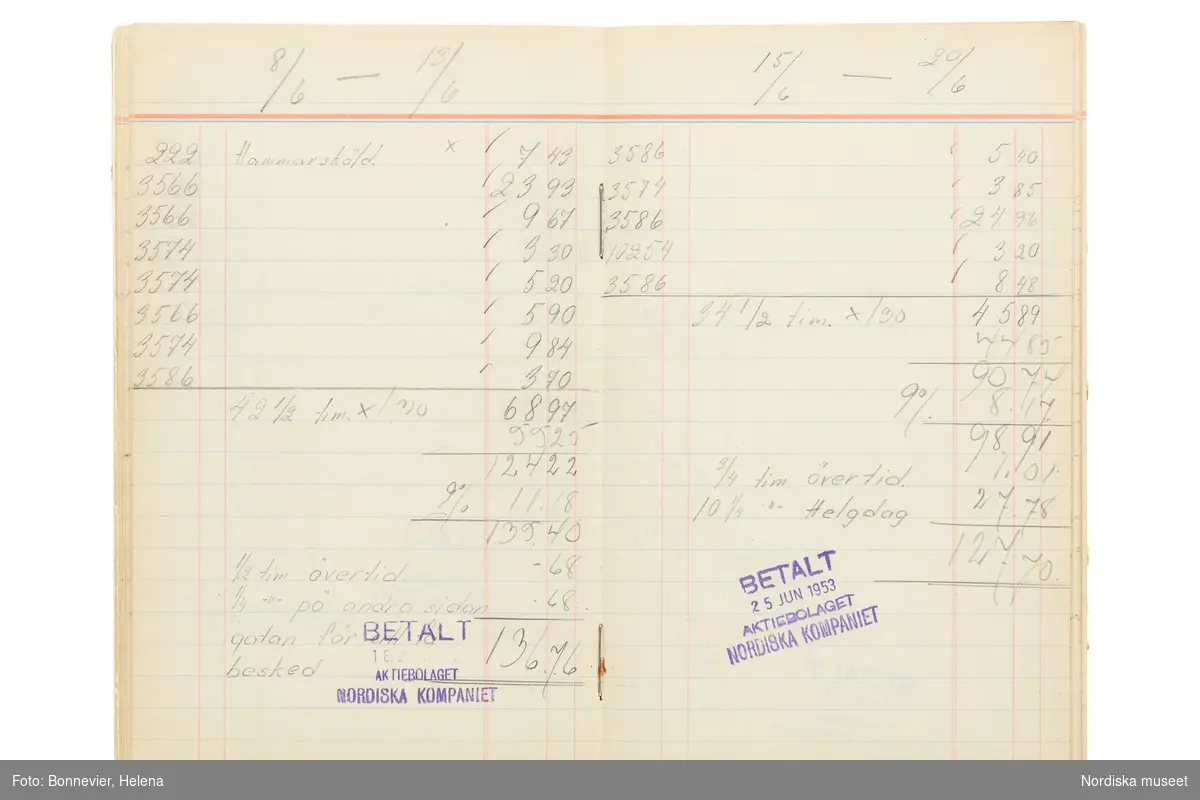 8/6 — 13/6
222 Hammarsköld. x 7 43
3566 23 93
3566 9 67
3574 3 30
3574 5 20
3566 5 90
3574 9 84
3586 3 70
42 1/2 tim. x 130 68 97
55 25
124 22
9% 11.18
135.40
1/2 tim övertid. -68
1/4 -"- på andra sidan -68
gatan för
besked 136.76
BETALT
AKTIEBOLAGET
NORDISKA KOMPANIET
15/6 — 20/6
3586 5 40
3574 3 85
3586 24 96
10254 3 20
3586 8 48
34 1/2 tim. x 130 45 89
44 85
90 74
9% 8.17
98.91
3/4 tim övertid. 1.01
10 1/4 -"- Helgdag 27.78
127.70
BETALT
25 JUN 1953
AKTIEBOLAGET
NORDISKA KOMPANIET
Foto: Bonnevier, Helena
Nordiska museet